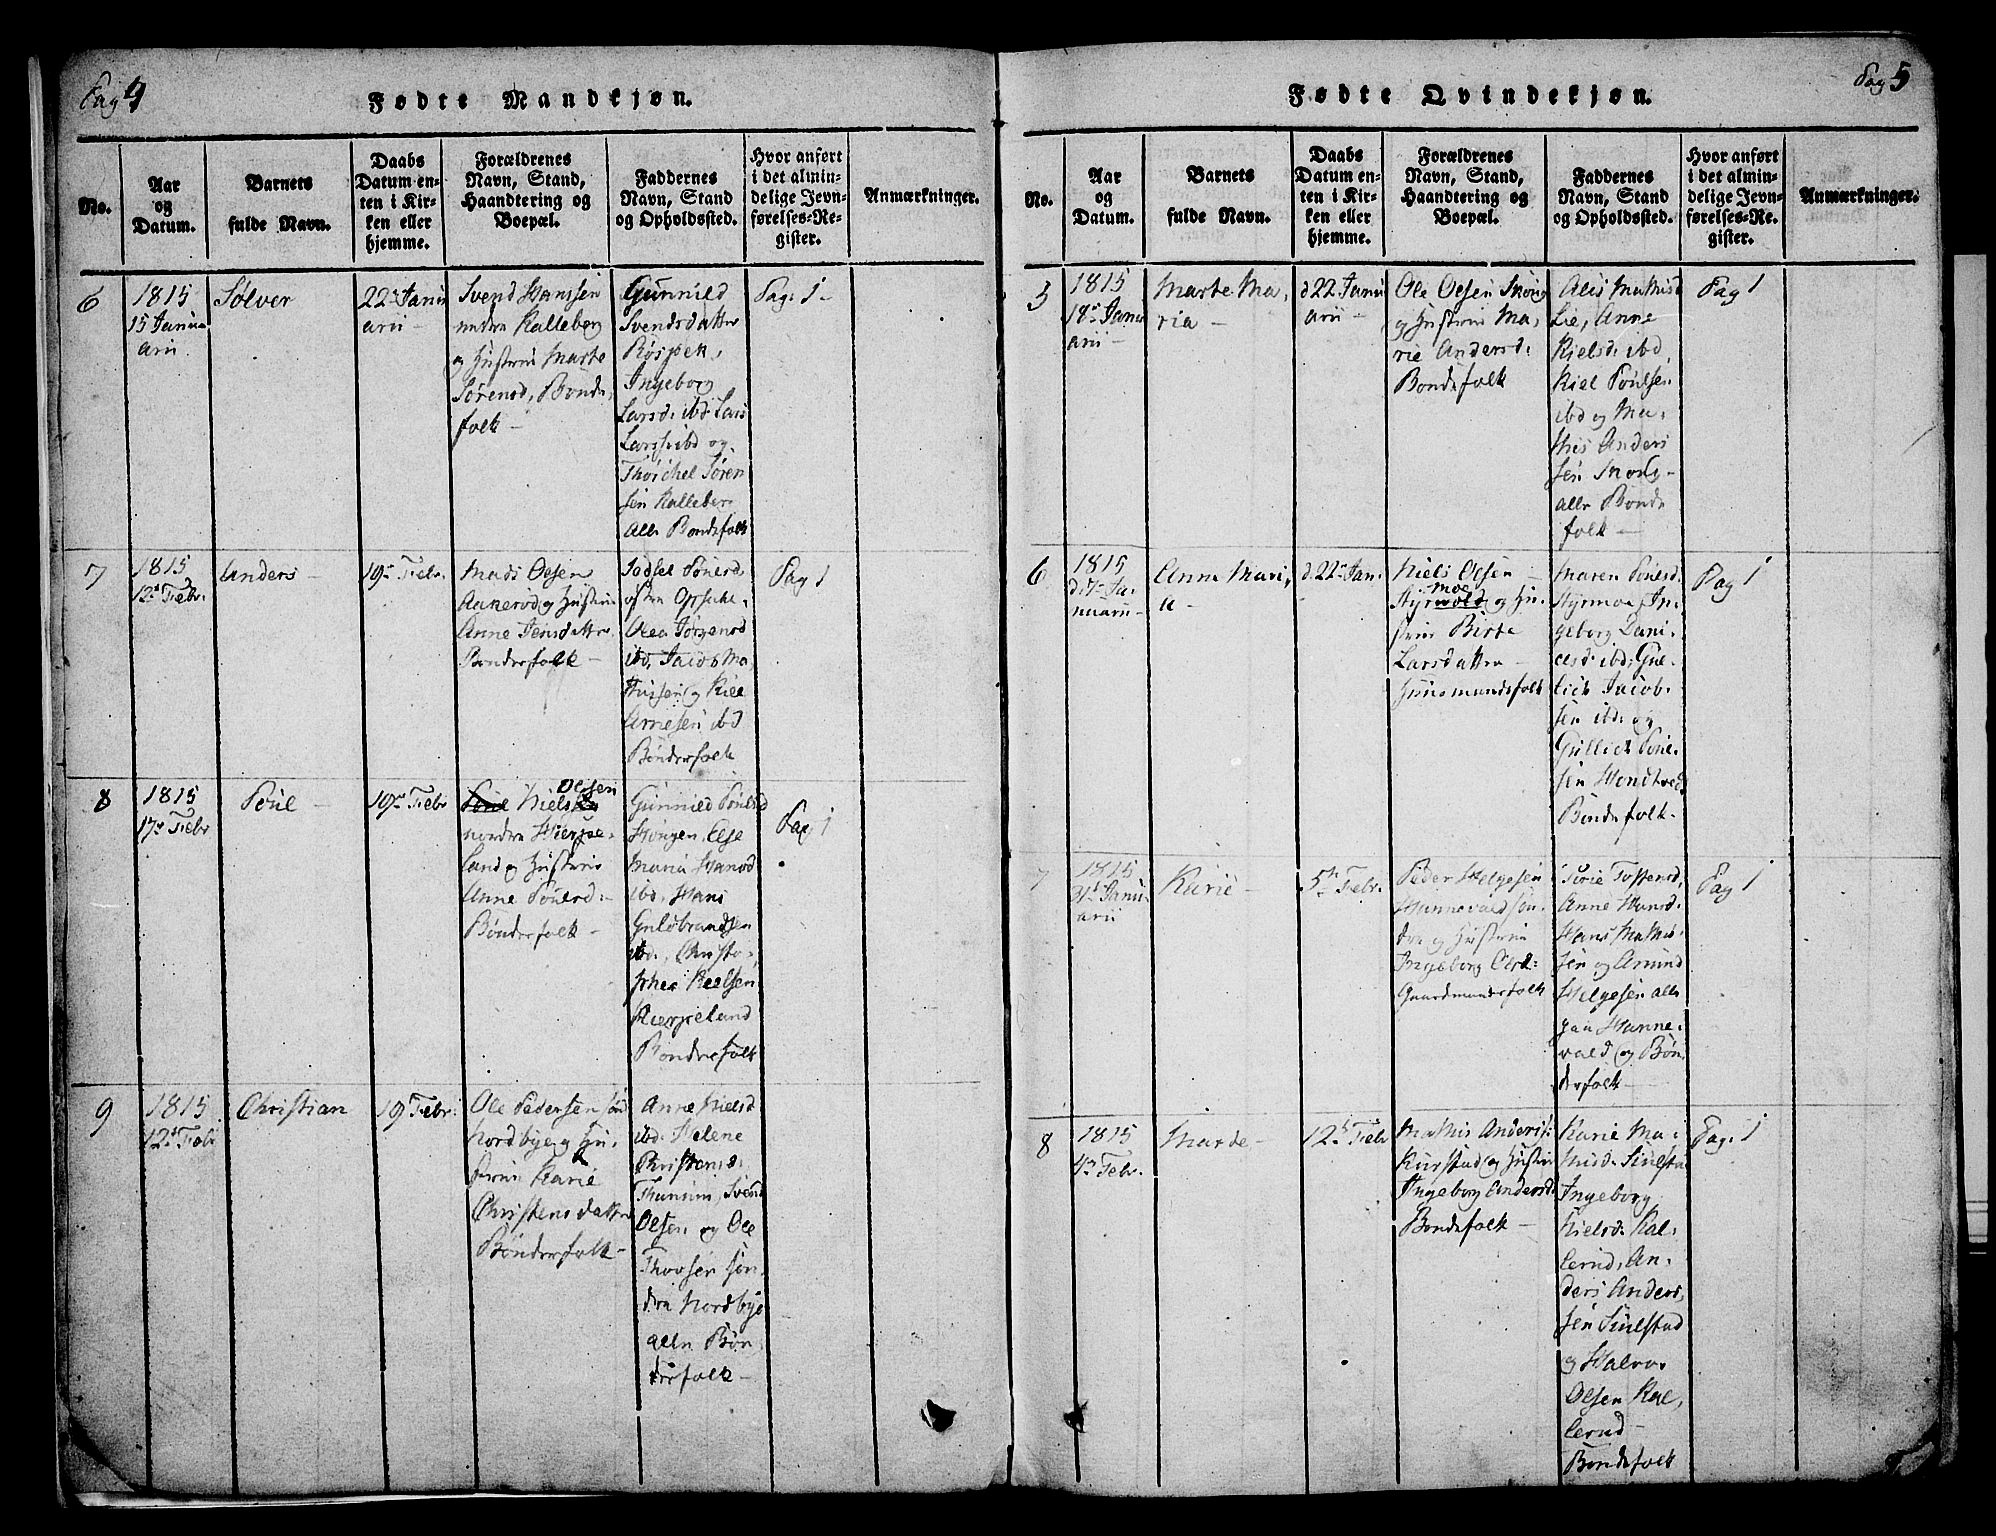 Pag 4
Fødte Mandkjøn.
No.
Aar
og
Datum.
Barnets
fulde Navn.
Daabs
Datum en-
ten i Kir-
ken eller
hjemme.
Forældrenes
Navn, Stand,
Haandtering og
Boepæl.
Faddernes
Navn, Stand
og Opholdssted.
Hvor anført
i det almin-
delige Jevn-
førelses-Re-
gister.
Anmærkninger.
6
1815
15 Janu
arii
Sølver
22 Janu
arii
Svend Hanssen
nedre Kalleberg
og Hustrue Marte
Sørensd, Bonde,
folk -
Gunnild
Svendsdatter
Ingeborg
Larsd: ibd Lars
Larss: ibd og
Thorchel Søren
sen Kalleber
alle Bondefolk
Pag: 1 -
7
1815
12t Febr:
Anders -
19de Febr.
Mads Olsen
Aanerød og Hustrue
Anne Jensdatter
Bønderfolk -
Olea Jørgensd
ibd, Jacob Ma
thissen og Kiel
Arnesen ibd
Bønderfolk
Pag 1
8
1815
17de Febr
Poul -
19de Febr
Niels Olssen
nordre Hierpe-
land og Hustrue
Anne Poulsd:
Bønderfolk -
Gunnild Poulsd
Hongen, Else
Maria Hansd
ibd, Hans
Gulbrandsen
ibd., Christo-
pher Kielsen
Kierpeland
Bonderfolk
Pag 1
9
1815
12t Feb:
Christian
19 Febr:
Ole Pedersen sønd
Nordbye og Hu-
strue Karie
Christensdatter
Bønderfolk -
Anne Nielsd
ibd. Helene
Christensd:
Thunum, Svend
Olsen og Ole
Thorsen søn-
dre Nordbye
alle Bøn-
derfolk -
Pag 5
Fødte Qvindekjøn.
No.
Aar
og
Datum.
Barnets
fulde Navn.
Daabs
Datum en-
ten i Kir-
ken eller
hjemme.
Forældrenes
Navn, Stand,
Haandtering og
Boepæl.
Faddernes
Navn, Stand
og Opholdssted.
Hvor anført
i det almin-
delige Jevn-
førelses-Re-
gister.
Anmærkninger.
5
1815
18de Janu
arii -
Marte Ma,
ria -
d 22 Janu
arii -
Ole Olsen
og Hustrue Ma,
rie Andersd:
Bondefolk
Alis Mathisd
Lie, Anne
Kielsd: ibd,
Kiel Poulsen
ibd og Ma,
this Anders
sen
alle Bonde
folk -
Pag 1
6
1815
d. 7de Ja-
nuarii -
Anne Mari,
a -
d. 22de Jan.
Niels Olsen
Styrmoe og Hu-
strue Birte
Larsdatter -
Huusmandsfolk
Maren Poulsd.
Styrmoe, In-
geborg Dani-
elsd: ibd; Gul-
lich Jacob-
sen ibd: og
Gullich Poul-
sen
Bøndefolk.
Pag 1
7
1815
31t Janu
arii
Karie -
5te Febr.
Peder Helgesen
Hannevald søn-
dre og Hustrue
Ingeborg Olsd:
Gaardmandsfolk
Torie Tostensd,
Anne Hansd:
Hans Mathis-
sen og Amund
Helgesen alle
paa Hanne-
vald og Bøn
derfolk -
Pag 1
8
1815
4de Febr.
Marte -
12te Febr
Mathis Anders:
Kurstad og Hustrue
Ingeborg Andersd:
Bondefolk -
Karie Ma-
thisd:
Ingeborg
Nielsd: Kal-
lerud, An-
ders Anders,
sen
og Halvor
Olsen Kal,
lerud -
Bøndefolk
Pag: 1